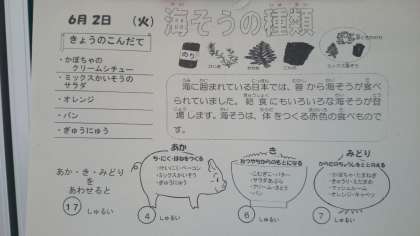 6月2日 (火)
海そうの種類
きょうのこんだて
・かぼちゃの
クリームシチュー
・ミックスかいそうの
サラダ
・オレンジ
・パン
・ぎゅうにゅう
のり
海に囲まれている日本では、昔から海そうが食べ
られていました。給食にもいろいろな海そうが登
場します。海そうは、体をつくる赤色の食べもので
す。
あか・き・みどり
を
あわせると
17 しゅるい
あか
ち・にく・ほねをつくる
・ミックスかいそう
・ぎゅうにゅう
4 しゅるい
き
ねつやちからのもとになる
・こむぎこ・バター
・サラダあぶら
・パン
6 しゅるい
みどり
からだのちょうしをととのえる
・かぼちゃ・たまねぎ
・きゅうり・えだまめ
・マッシュルーム
・オレンジ・キャベツ
7 しゅるい